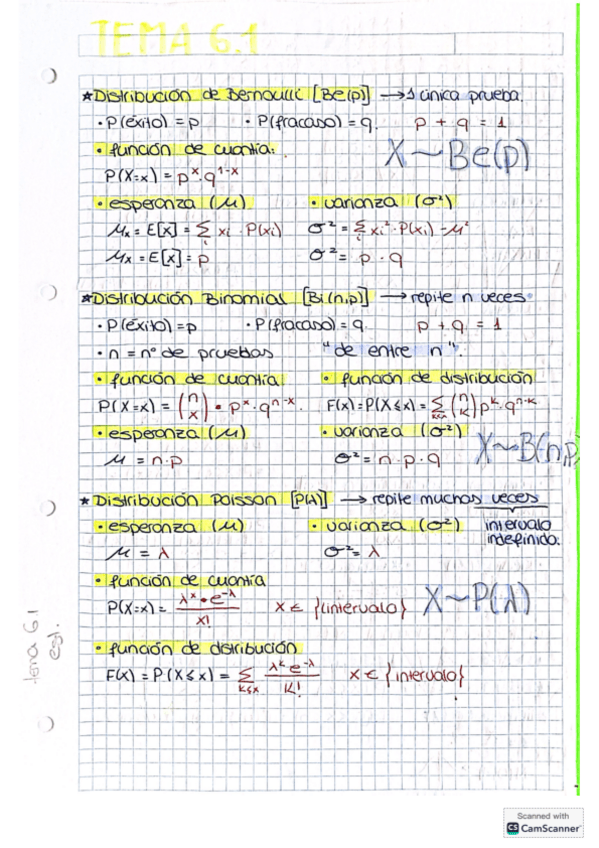 TEMA 6.1
★Distribución de Bernoulli [Be(p)] → 1 única prueba.
· P(éxito) = p · P(fracaso) = q. p + q = 1
· función de cuantía: X ~ Be(p)
P(X=x) = pˣ·q¹⁻ˣ
· esperanza (μ) · varianza (σ²)
μₓ = E[X] = Σᵢ xᵢ · P(xᵢ) σ² = Σᵢ xᵢ² · P(xᵢ) - μ²
μₓ = E[X] = p σ² = p · q
★Distribución Binomial [Bi(n,p)] → repite n veces
· P(éxito) = p · P(fracaso) = q. p + q = 1
· n = nº de pruebas "de entre n".
· función de cuantía: · función de distribución
P(X=x) = (n x) · pˣ · qⁿ⁻ˣ. F(x) = P(X≤x) = Σ k≤x (n k) pᵏ · qⁿ⁻ᵏ
· esperanza (μ) · varianza (σ²) X~B(n,p)
μ = n·p σ² = n·p·q
★Distribución Poisson [P(λ)] → repite muchas veces
· esperanza (μ) · varianza (σ²) intervalo
indefinido.
μ = λ σ² = λ
· función de cuantía
P(X=x) = λˣ·e^-λ / x! x ∈ {intervalo} X~P(λ)
· función de distribución
F(x) = P(X≤x) = Σ k≤x λᵏ e^-λ / k! x ∈ {intervalo}
tema 6.1
est.
Scanned with
CS CamScanner